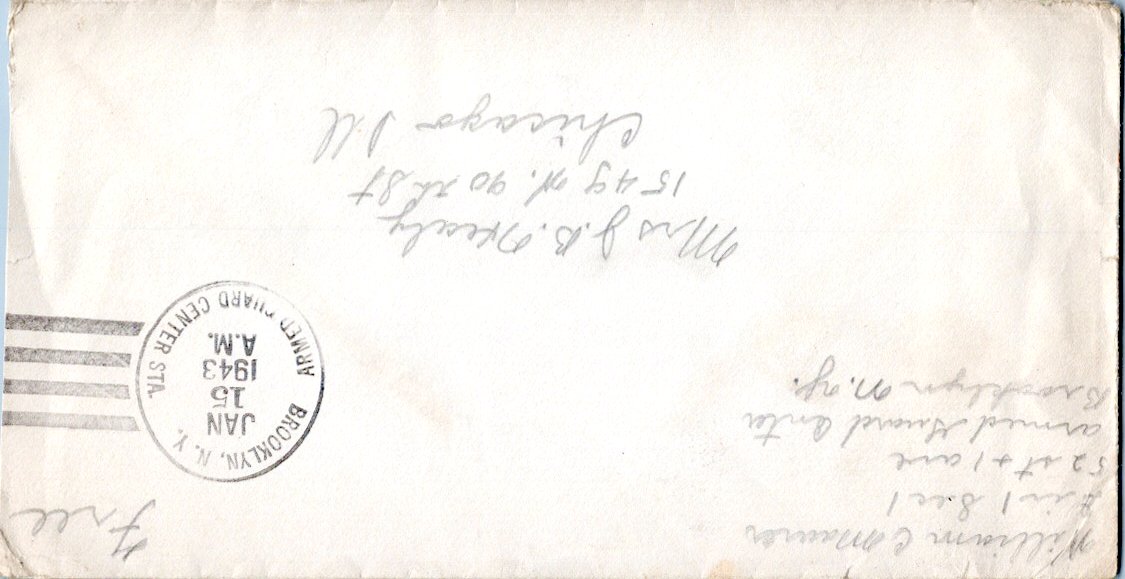 William C Maurer
Div 1 Sec 1
52 st + 1 ave
armed Guard Center
Brooklyn N.Y.
Free
BROOKLYN, N. Y.
JAN
15
1943
A.M.
ARMED GUARD CENTER STA.
Mrs J. B. Healy
1549 W. 90 th St
Chicago Ill